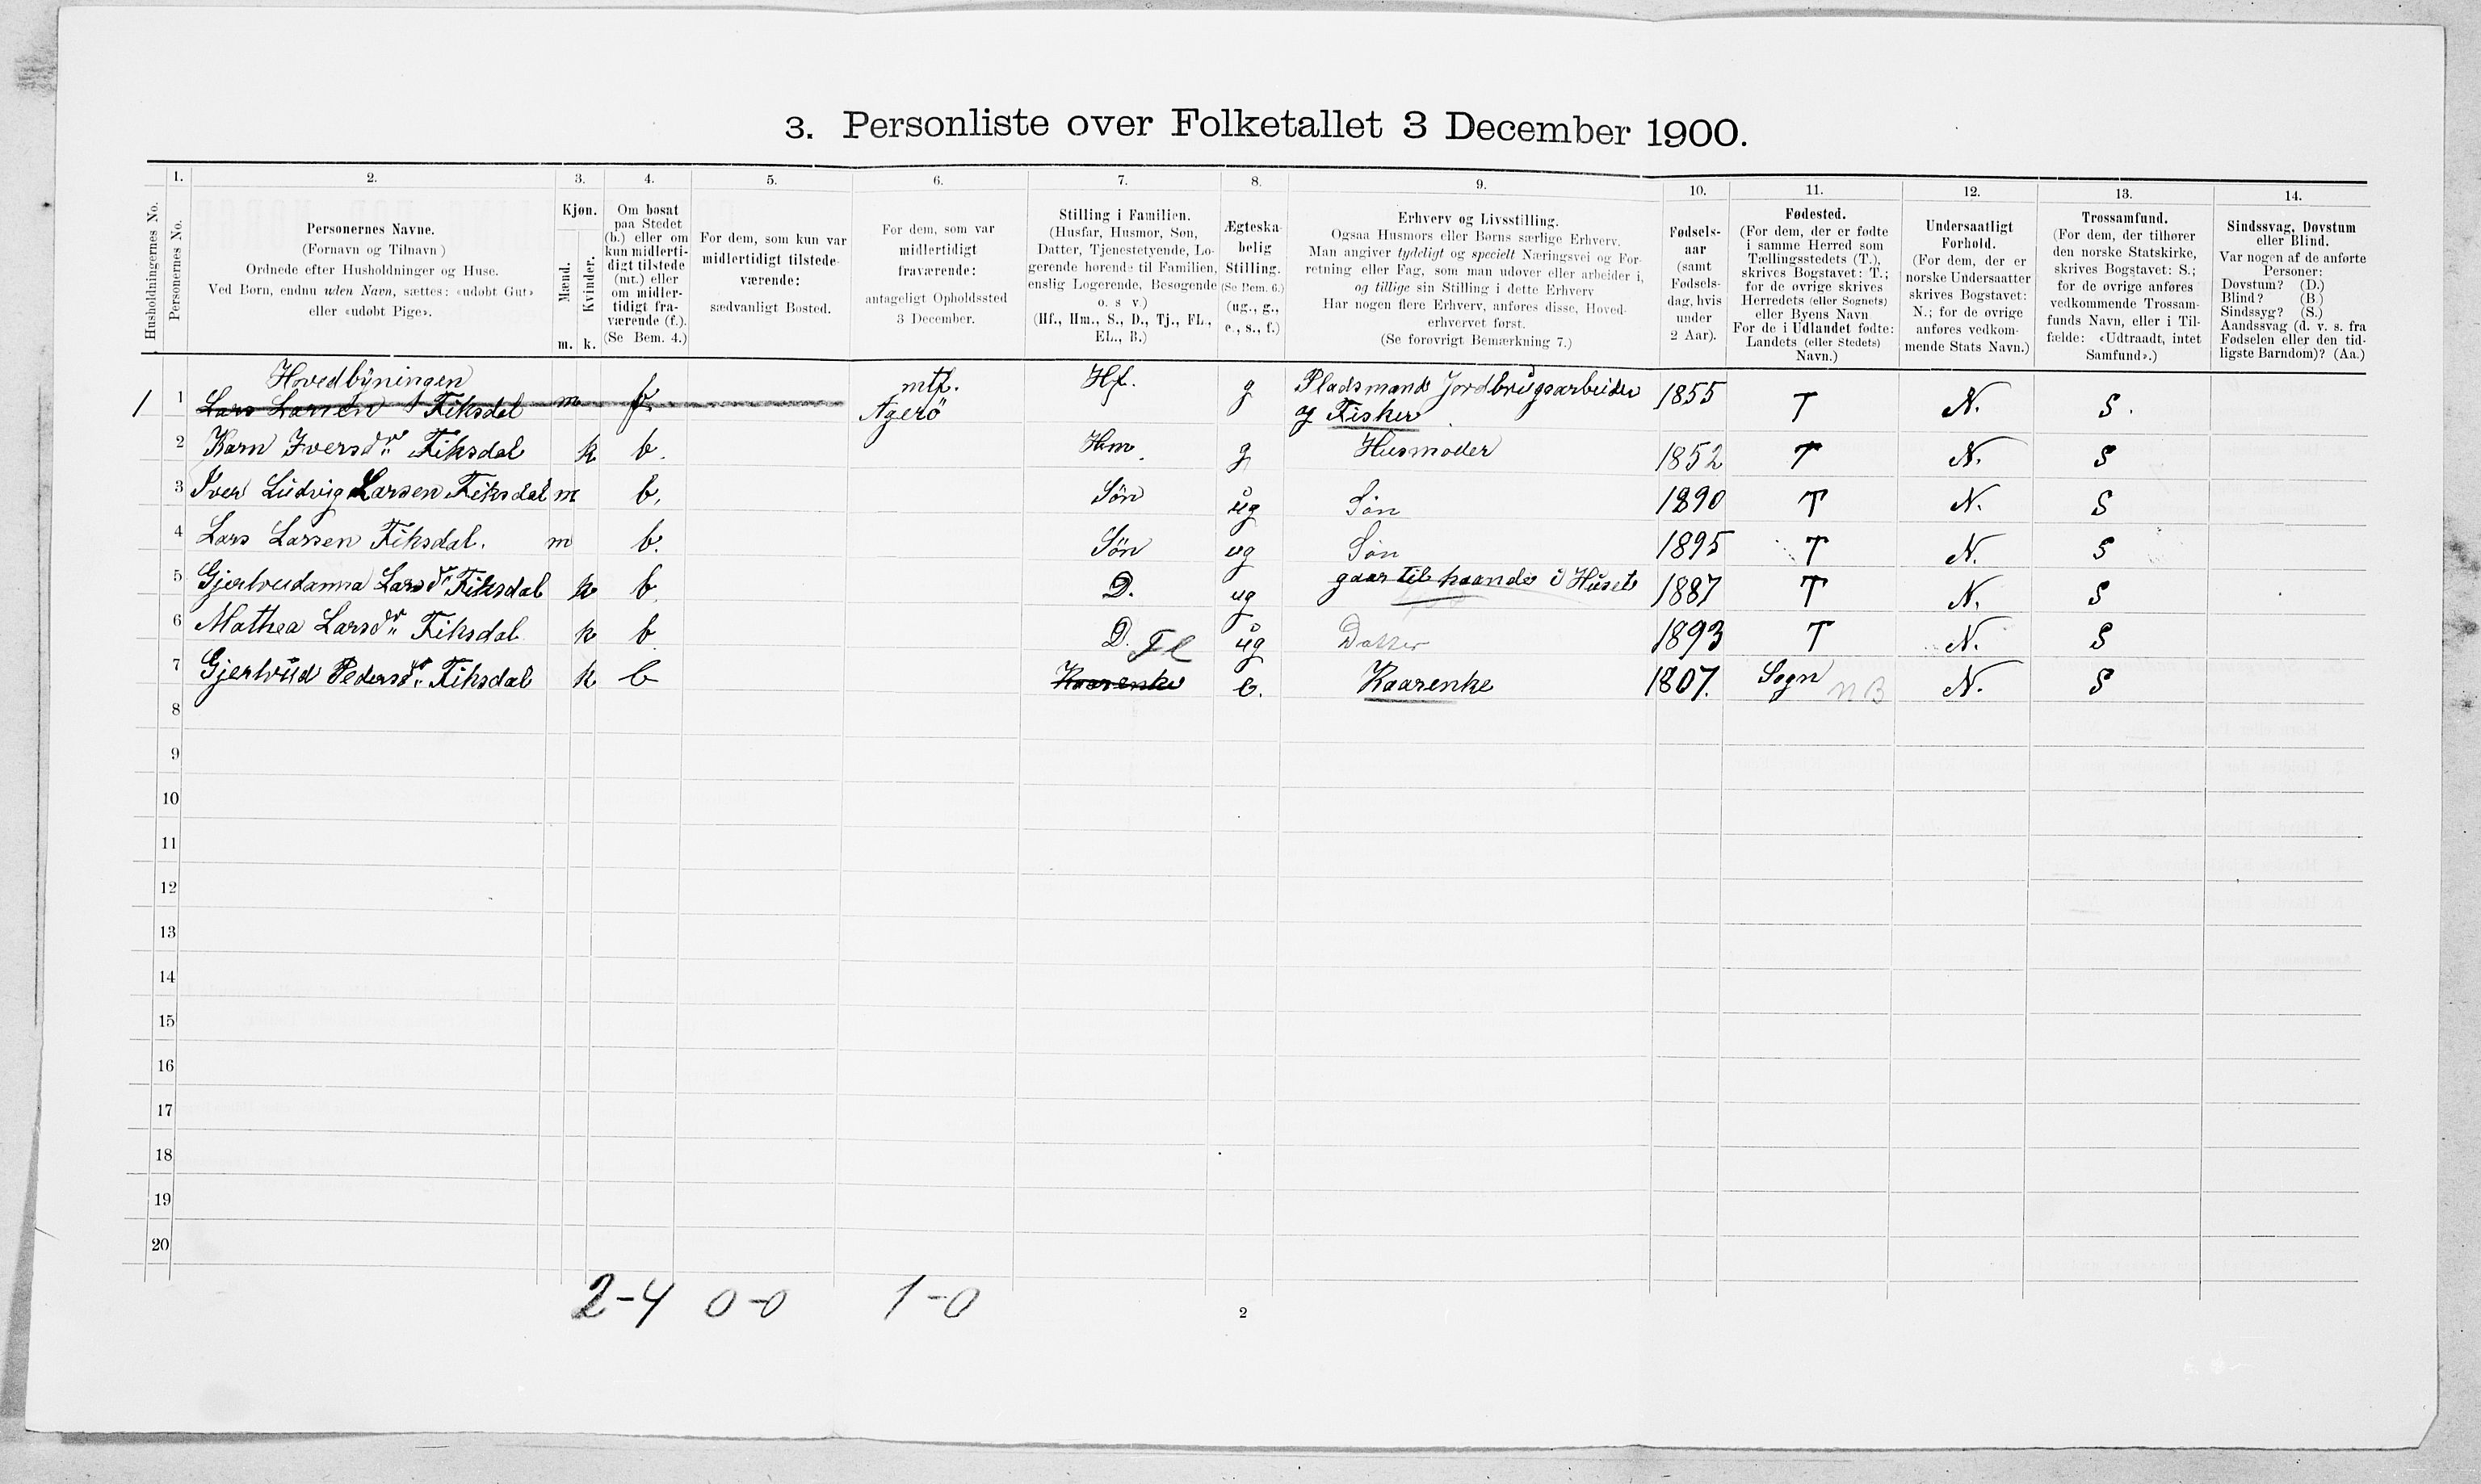 3. Personliste over Folketallet 3 December 1900.
1. 2. 3. 4. 5. 6. 7. 8. 9. 10. 11. 12. 13. 14.
Husholdningernes No.
Personernes No.
Personernes Navne.
(Fornavn og Tilnavn)
Ordnede efter Husholdninger og Huse.
Ved Børn, endnu uden Navn, sættes: «udøbt Gut»
eller «udøbt Pige».
Kjøn.
Mænd.
Kvinder.
m. k.
Om bosat
paa Stedet
(b.) eller om
kun midlerti-
digt tilstede
(mt.) eller
om midler-
tidigt fra-
værende (f.).
(Se Bem. 4.)
For dem, som kun var
midlertidigt tilstede-
værende:
sædvanligt Bosted.
For dem, som var
midlertidigt
fraværende:
antageligt Opholdssted
3 December.
Stilling i Familien.
(Husfar, Husmor, Søn,
Datter, Tjenestetyende, Lo-
gerende hørende til Familien,
enslig Logerende, Besøgende
o. s v.)
(Hf., Hm., S., D., Tj., FL.,
EL., B.)
Ægteska-
belig
Stilling.
(Se Bem. 6.)
(ug., g.,
e., s., f.)
Erhverv og Livsstilling.
Ogsaa Husmors eller Børns særlige Erhverv.
Man angiver tydeligt og specielt Næringsvei og For-
retning eller Fag, som man udøver eller arbeider i,
og tillige sin Stilling i dette Erhverv
Har nogen flere Erhverv, anføres disse, Hoved-
erhvervet først.
(Se forøvrigt Bemærkning 7.)
Fødsels-
aar
(samt
Fødsels-
dag, hvis
under
2 Aar).
Fødested.
(For dem, der er fødte
i samme Herred som
Tællingsstedets (T.),
skrives Bogstavet: T.;
for de øvrige skrives
Herredets (eller Sognets)
eller Byens Navn
For de i Udlandet fødte:
Landets (eller Stedets)
Navn.)
Undersaatligt
Forhold.
(For dem, der er
norske Undersaatter
skrives Bogstavet:
N.; for de øvrige
anføres vedkom-
mende Stats Navn.)
Trossamfund.
(For dem, der tilhører
den norske Statskirke,
skrives Bogstavet: S.;
for de øvrige anføres
vedkommende Trossam-
funds Navn, eller i Til-
fælde: «Udtraadt, intet
Samfund».)
Sindssvag, Døvstum
eller Blind.
Var nogen af de anførte
Personer:
Døvstum? (D.)
Blind? (B.)
Sindssyg? (S.)
Aandssvag (d. v. s. fra
Fødselen eller den tid-
ligste Barndom)? (Aa.)
Hovedbyningen mtf. Hf. Pladsmand Jordbrugsarbeider
1 1 Lars Larsen Fiksdal m f. Agerö g og Fisker 1855 T N. S.
2 Karn Iversdr. Fiksdal k b. Hm. g Husmoder 1852 T N. S
3 Iver Ludvig Larsen Fiksdal m b. Sön ug Sön 1890 T N. S
4 Lars Larsen Fiksdal. m b. Sön ug Sön 1895 T N. S
5 Gjertrudanna Larsdr. Fiksdal k b. D. ug gaar til haande i Huset 1887 T N. S
6 Mathea Larsdr. Fiksdal k b. D. ug Datter 1893 T N. S
7 Gjertrud Pedersdr. Fiksdal k b Fl Kaarenke e. Kaarenke 1807. Sogn NB N. S
8
9
10
11
12
13
14
15
16
17
18
19
20
2-4 0-0 1-0
2